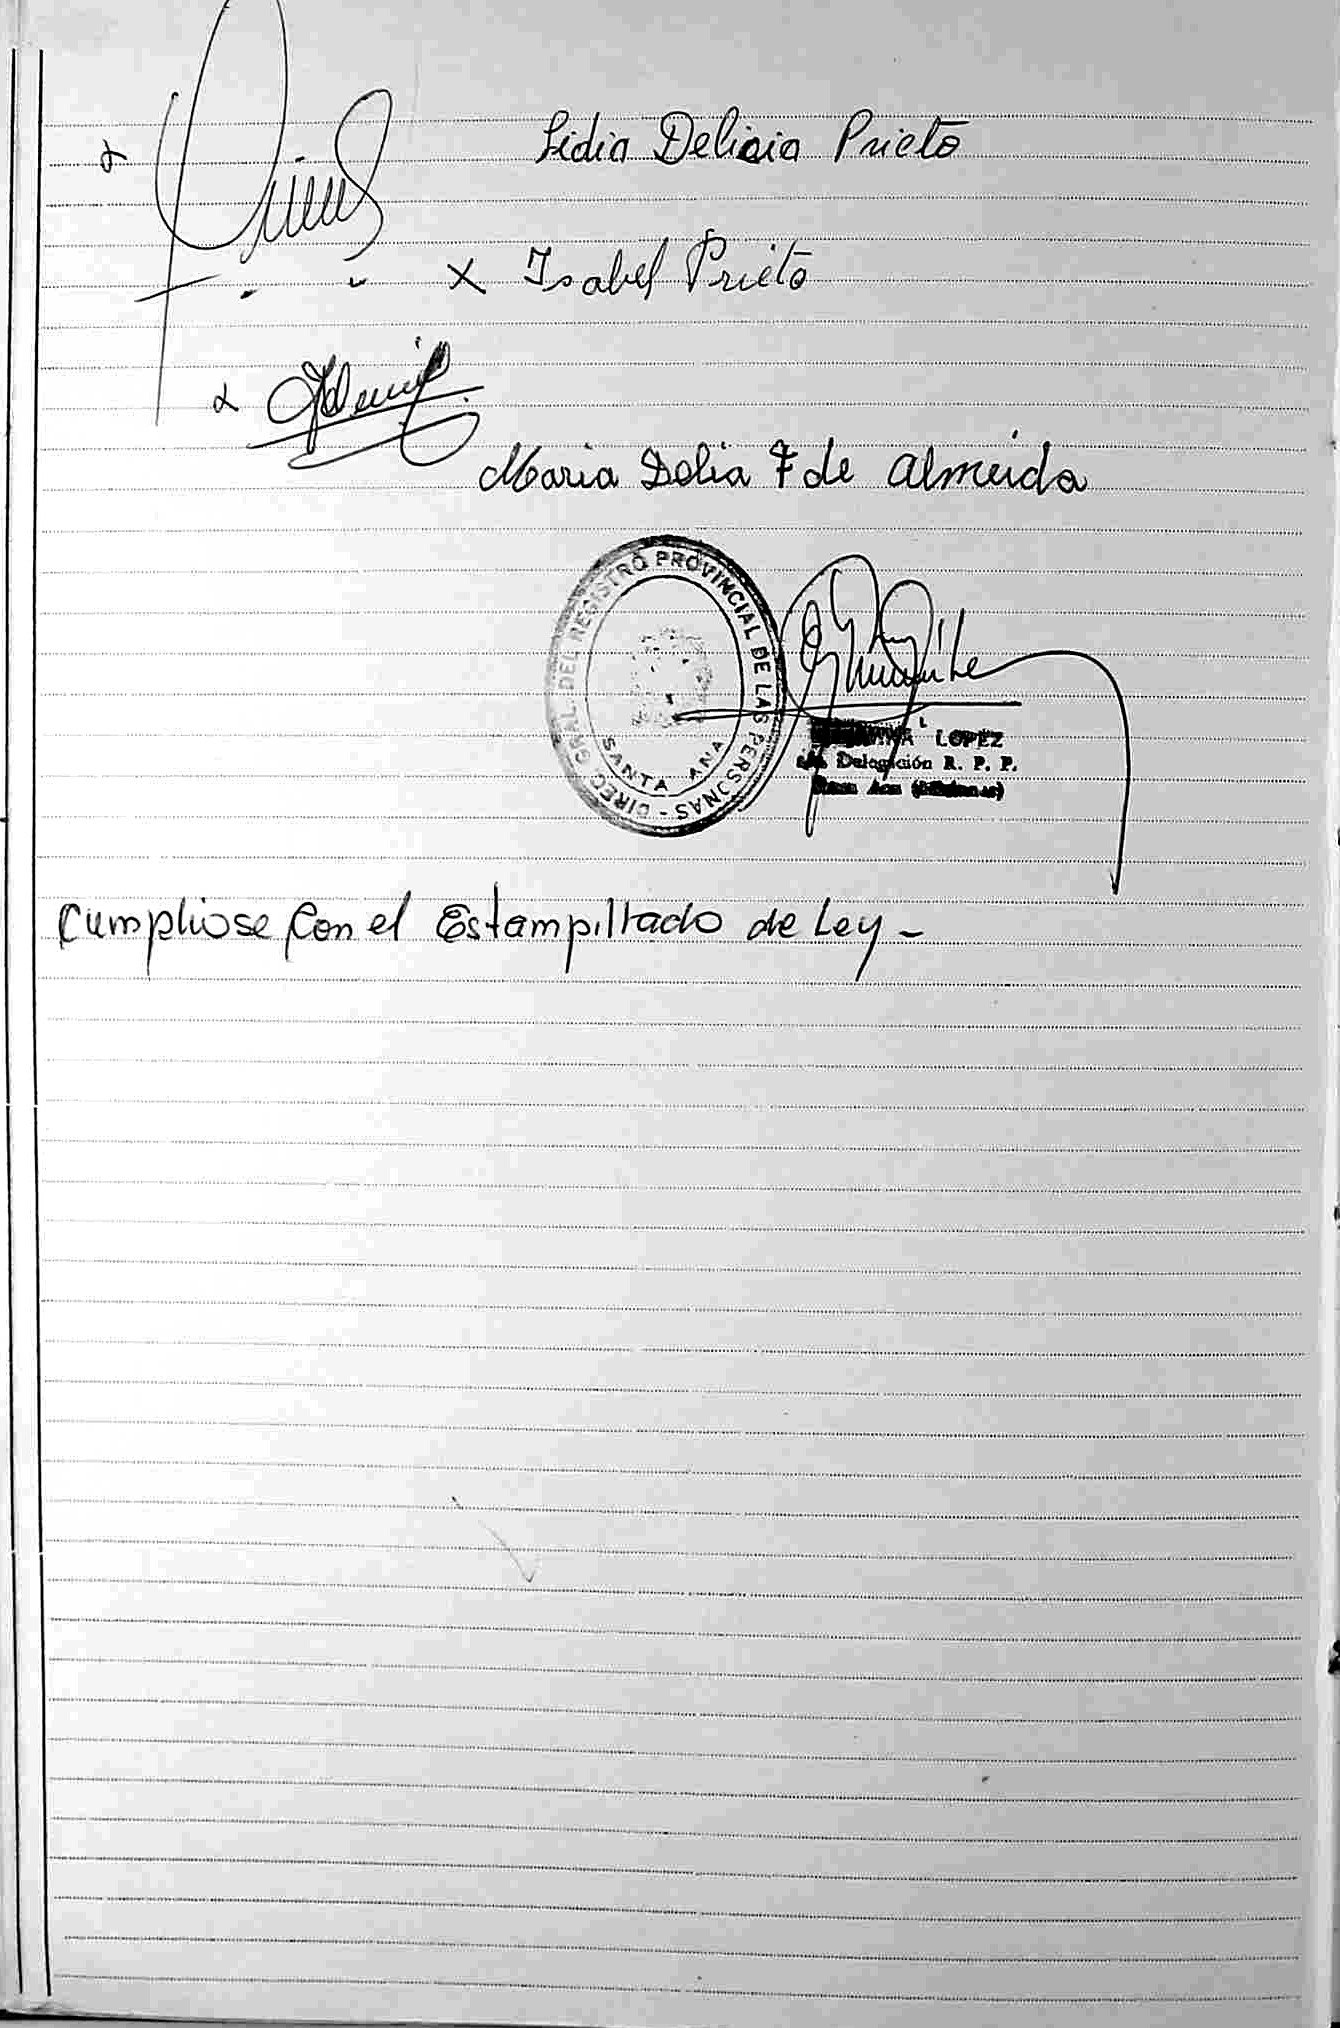 x
Lidia Delicia Prieto
x Isabel Prieto
x
Maria Delia F de Almeida
DIREC. GRAL. DEL REGISTRO PROVINCIAL DE LAS PERSONAS -
SANTA ANA
LOPEZ
Delegación R. P. P.
Santa Ana (Misiones)
Cumpliose con el Estampillado de Ley -